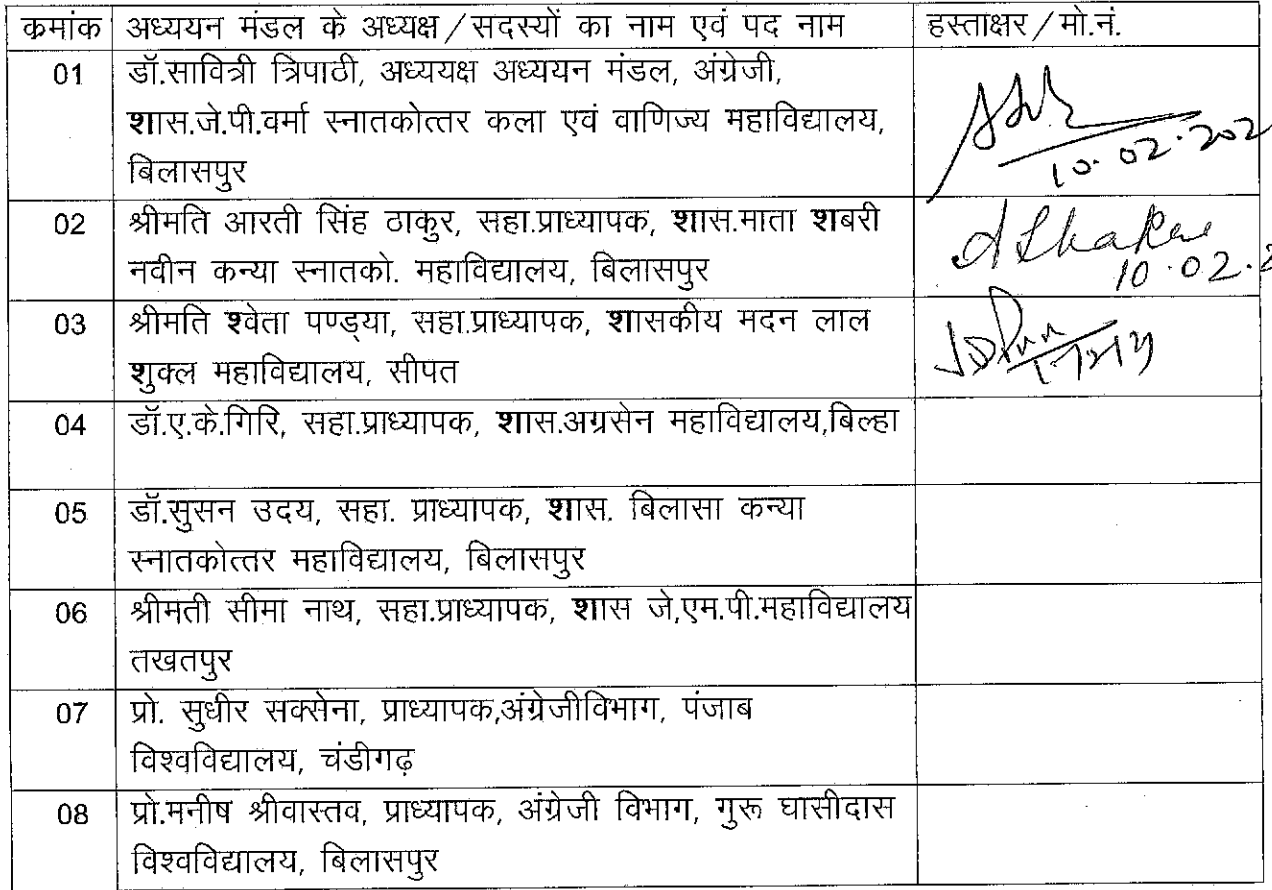 कमांक अध्ययन मंडल के अध्यक्ष/सदस्यों का नाम एवं पद नाम हस्ताक्षर/मो.नं.
01 डॉ.सावित्री त्रिपाठी, अध्ययक्ष अध्ययन मंडल, अंग्रेजी,
शास.जे.पी.वर्मा स्नातकोत्तर कला एवं वाणिज्य महाविद्यालय,
बिलासपुर
10.02.202
02 श्रीमति आरती सिंह ठाकुर, सहा.प्राध्यापक, शास.माता शबरी
नवीन कन्या स्नातको. महाविद्यालय, बिलासपुर
10.02.2
03 श्रीमति श्वेता पण्ड्या, सहा.प्राध्यापक, शासकीय मदन लाल
शुक्ल महाविद्यालय, सीपत
04 डॉ.ए.के.गिरि, सहा.प्राध्यापक, शास.अग्रसेन महाविद्यालय,बिल्हा
05 डॉ.सुसन उदय, सहा. प्राध्यापक, शास. बिलासा कन्या
स्नातकोत्तर महाविद्यालय, बिलासपुर
06 श्रीमती सीमा नाथ, सहा.प्राध्यापक, शास जे,एम.पी.महाविद्यालय
तखतपुर
07 प्रो. सुधीर सक्सेना, प्राध्यापक,अंग्रेजीविभाग, पंजाब
विश्वविद्यालय, चंडीगढ़
08 प्रो.मनीष श्रीवास्तव, प्राध्यापक, अंग्रेजी विभाग, गुरू घासीदास
विश्वविद्यालय, बिलासपुर